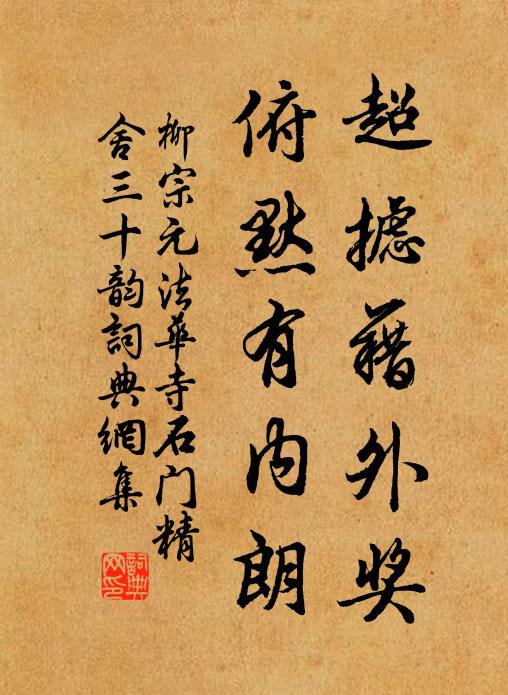 超摅藉外奖
俯默有内朗
柳宗元法華寺石门精
舍三十韵詞典網集
詞典
网印